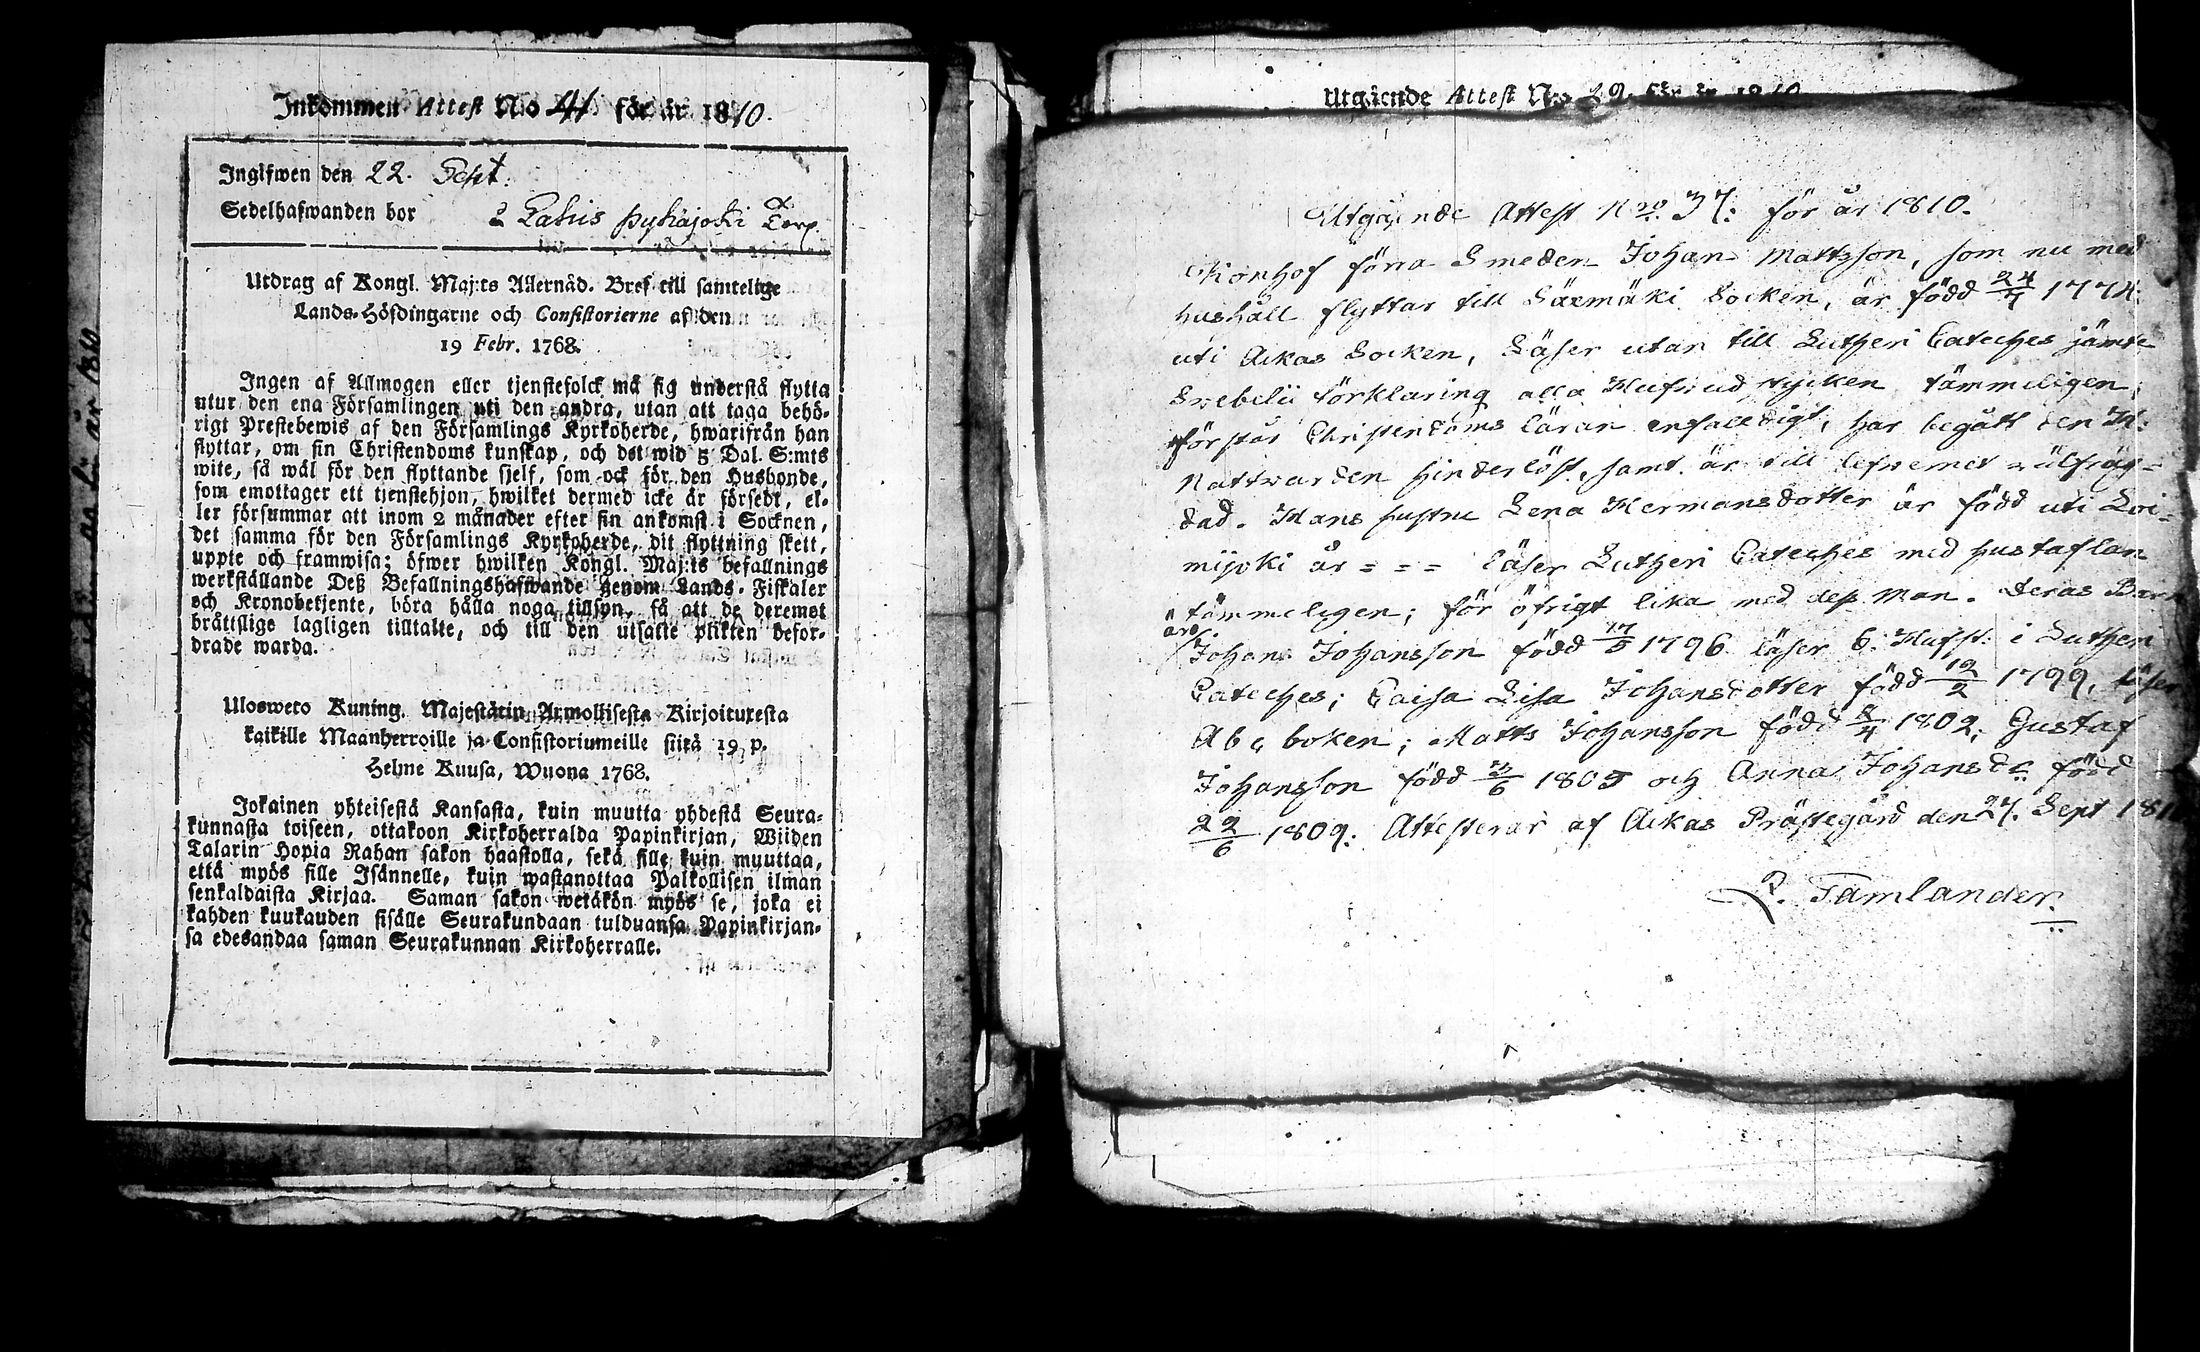 Inkommen Attest No 41 för år 1810.
Ingifwen den 22. Sept.
Sedelhafwanden bor Pyhäjoki Torp.
Utdrag af Kongl. Maj:ts Allernåd. Bref till samtelige
Lands-Höfdingarne och Consistorierne af den
19 Febr. 1768.
Ingen af Allmogen eller tjenstefolck må sig understå flytta
utur den ena Församlingen uti den andra, utan att taga behö-
rigt Prestebewis af den Församlings Kyrkoherde, hwarifrån han
flyttar, om sin Christendoms kunskap, och det wid 5 Dal. S:mts
wite, så wäl för den flyttande sjelf, som ock för den Husbonde,
som emottager ett tjenstehjon, hwilket dermed icke är försedt, el-
ler försummar att inom 2 månader efter sin ankomst i Socknen,
det samma för den Församlings Kyrkoherde, dit flyttning skett,
uppte och framwisa; öfwer hwilken Kongl. Maj:ts befallnings
werkställande Deß Befallningshafwande genom Lands-Fiskaler
och Kronobetjente, böra hålla noga tillsyn, så att de deremot
bråttslige lagligen tilltalte, och till den utsatte plikten befor-
drade warda.
Ulosweto Kuning. Majestätin Armollisesta Kirjoituxesta
kaikille Maanherroille ja Consistoriumeille siitä 19 p.
Helme Kuusa, Wuona 1768.
Jokainen yhteisestä Kansasta, kuin muutta yhdestä Seura-
kunnasta toiseen, ottakoon Kirkoherralda Papinkirjan, Wiiden
Talarin Hopia Rahan sakon haastolla, sekä sille kuin muuttaa,
että myös sille Isännelle, kuin wastanottaa Palkollisen ilman
senkaldaista Kirjaa. Saman sakon wetäkön myös se, joka ei
kahden kuukauden sisälle Seurakundaan tulduansa Papinkirjan-
sa edesandaa saman Seurakunnan Kirkoherralle.
Utgående Attest No 39. för år 1810
Utgående Attest N:ro 37: för år 1810.
förra Smeden Johan Mattsson, som nu med
hushåll flyttar till Säxmäki Socken, är född 24/7 1774
uti Ackas Socken, Läser utan till Lutheri Cateches jämte
Svebelii förklaring alla Hufwudstycken tämmeligen,
förstår Christendoms läran enfalldigt, har begått den H:
Nattwarden hinderlöst, samt är till lefwernet wälfräg-
dad. Hans hustru Lena Hermansdotter är född uti Loi-
mijoki år = = = läser Lutheri Cateches med hustaflan
tämmeligen; för öfrigt lika med deß Man. Deras Barn
äro
Johan Johansson född 17/5 1796 läser 6. Hufst: i Lutheri
Cateches; Caisa Lisa Johansdotter född 12/2 1799, läser
Abc boken; Matts Johansson född 8/4 1802; Gustaf
Johansson född 1805 och Anna Johansd:r född
22/6 1809. Attesterar af Ackas Prästegård den 27. Sept 181
P. Tamlander.